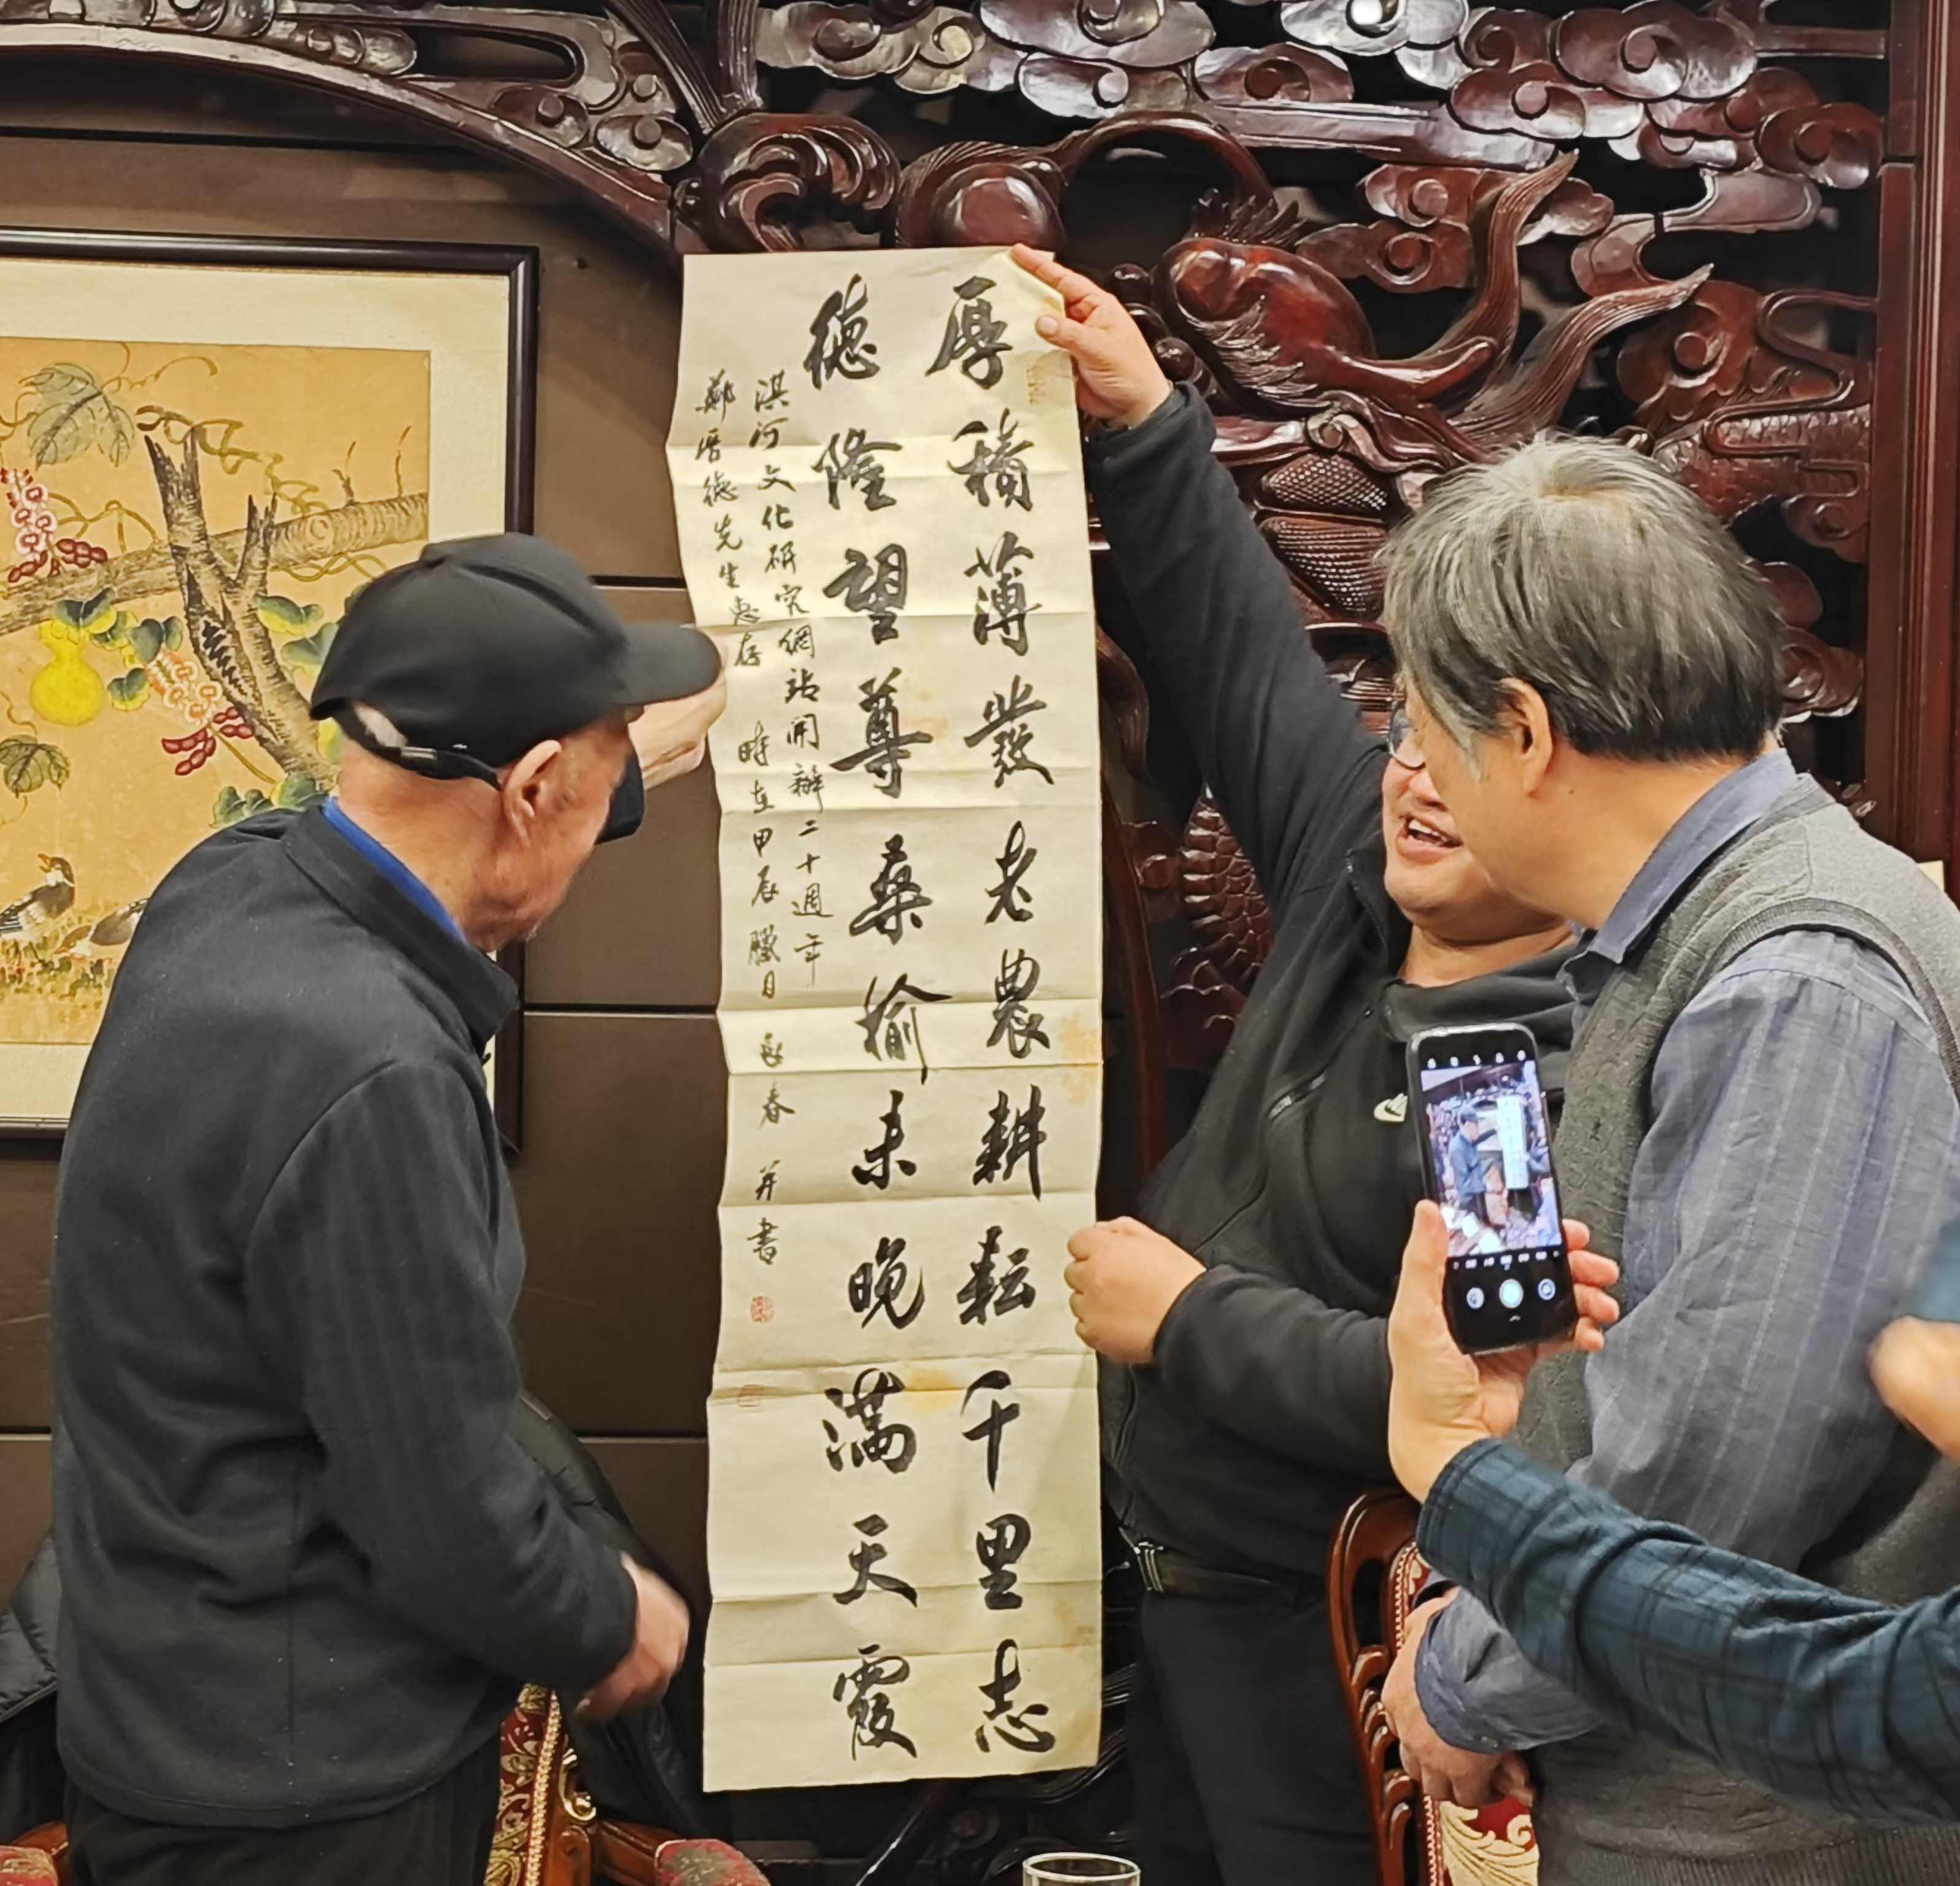 厚積薄發老農耕耘千里志
德隆望尊桑榆未晚滿天霞
淇河文化研究網站開辦二十週年
鄭厝德先生惠存
時在甲辰臘月
春
并書